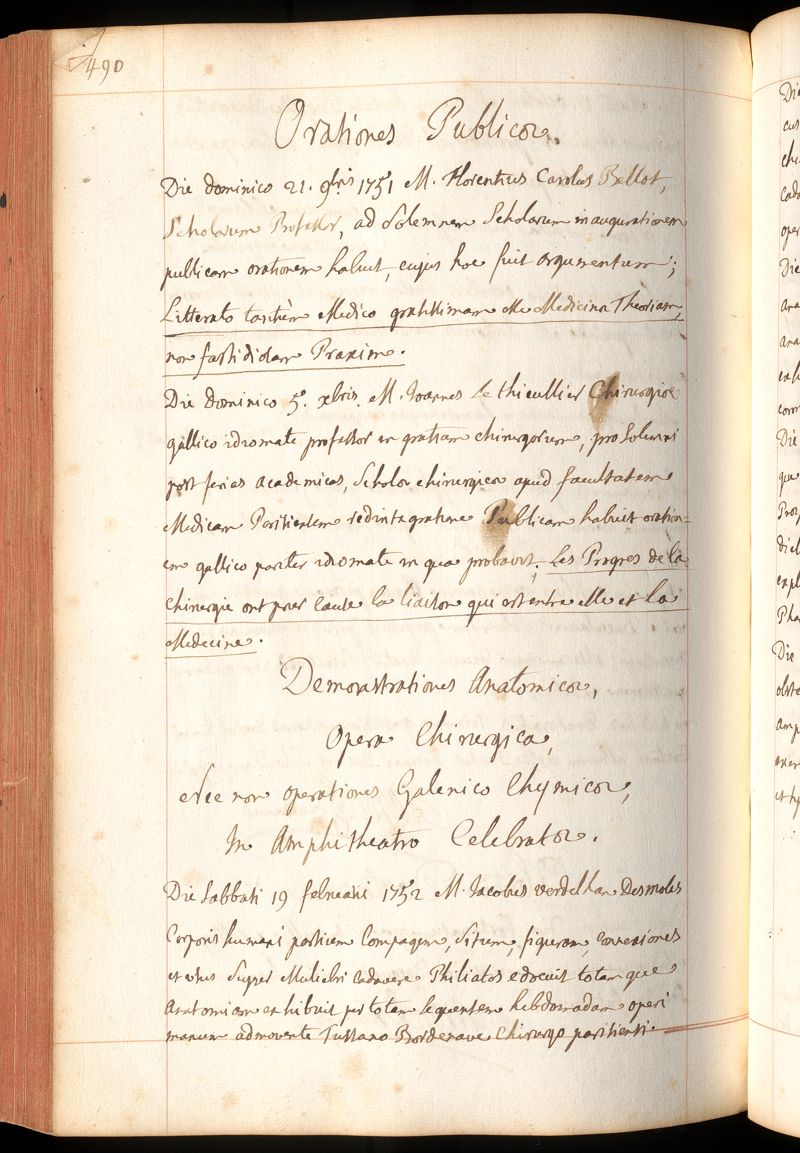 490
Orationes Publicæ.
Die dominico 21. 9bris 1751 M. Florentius Carolus Bellot,
Scholarum Professor, ad Solemnem Scholarum inaugurationem
publicam orationem habuit, cujus hoc fuit argumentum;
Litterato Medico gratissimam esse Medicinæ Theoriam,
non fastidiosam Praxim.
Die dominico 5. xbris. M. Joannes Le thieullier Chirurgiæ
gallico idiomate professor in gratiam chirurgorum, pro Solemni
post ferias academicas, Scholæ chirurgicæ apud facultatem
Medicam Parisiensem redintegratione Publicam habuit oration=
em gallico pariter idiomate in qua probavit, Les Progres de la
Chirurgie ont pour cause la liaison qui est entre elle et la
Medecine.
Demonstrationes Anatomicæ,
Opera Chirurgica,
Nec non operationes Galenico Chymicæ,
In Amphitheatro Celebratæ.
Die Sabbati 19 februarii 1752 M. Jacobus verdelhan Desmoles
Corporis humani partium Compagem, Situm, figuram, connexiones
et usus Super Muliebri cadavere Philiatos edocuit totamque
Anatomiam exhibuit per totam sequentem hebdomadam operi
manum admovente Tussano Bordenave Chirurgo parisiensi.